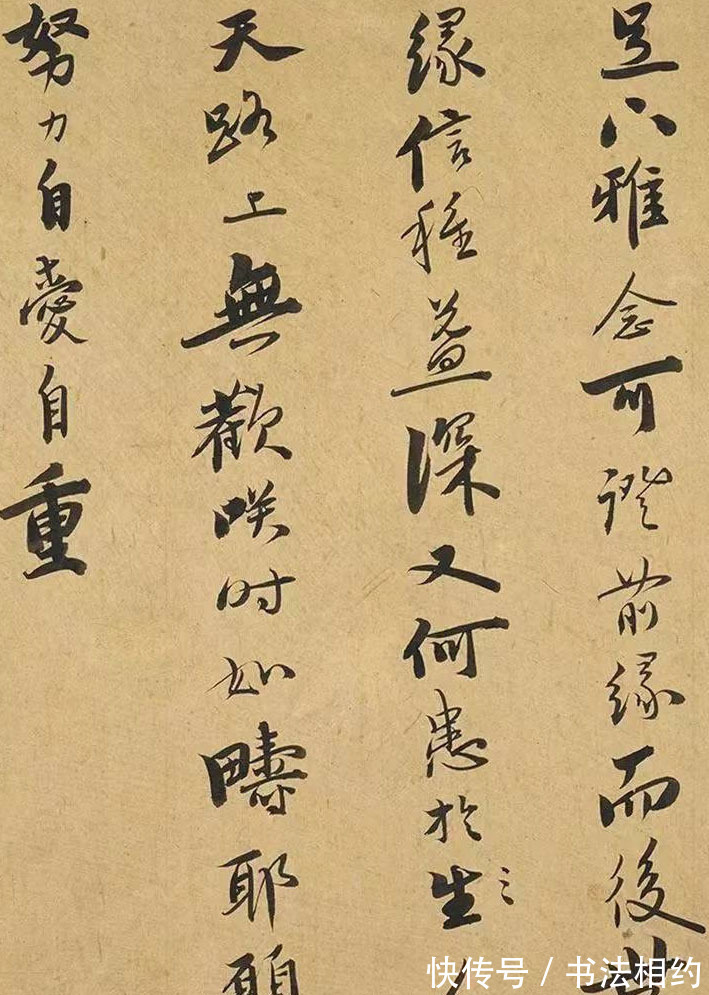 足下雅念可證前緣而後
緣信種益深又何患於生〻
天路上無歡咲时如疇耶
努力自愛自重
快传号 / 书法相约